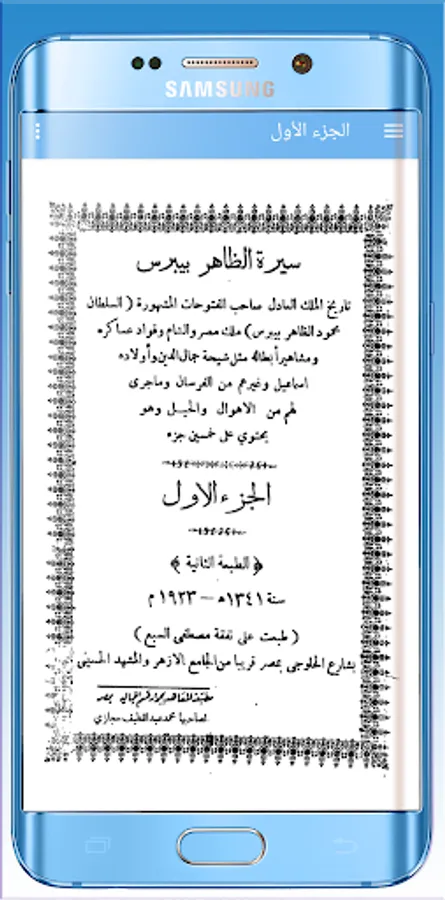 SAMSUNG
الجزء الأول
سيرة الظاهر بيبرس
تاريخ الملك العادل صاحب الفتوحات المشهورة (السلطان
محمود الظاهر بيبرس) ملك مصر والشام وقواد عساكره
ومشاهير أبطاله مثل شيحة جمال الدين وأولاده
اسماعيل وغيرهم من الفرسان وماجرى
لهم من الاهوال والحيل وهو
يحتوي على خمسين جزء
الجزء الاول
﴿ الطبعة الثانية ﴾
سنة ١٣٤١ هـ — ١٩٢٣ م
(طبعت على نفقة مصطفى السبع)
بشارع الحلوجى بمصر قريبا من الجامع الازهر والمشهد الحسينى
بمصر
لصاحبها محمد عبد اللطيف حجازي